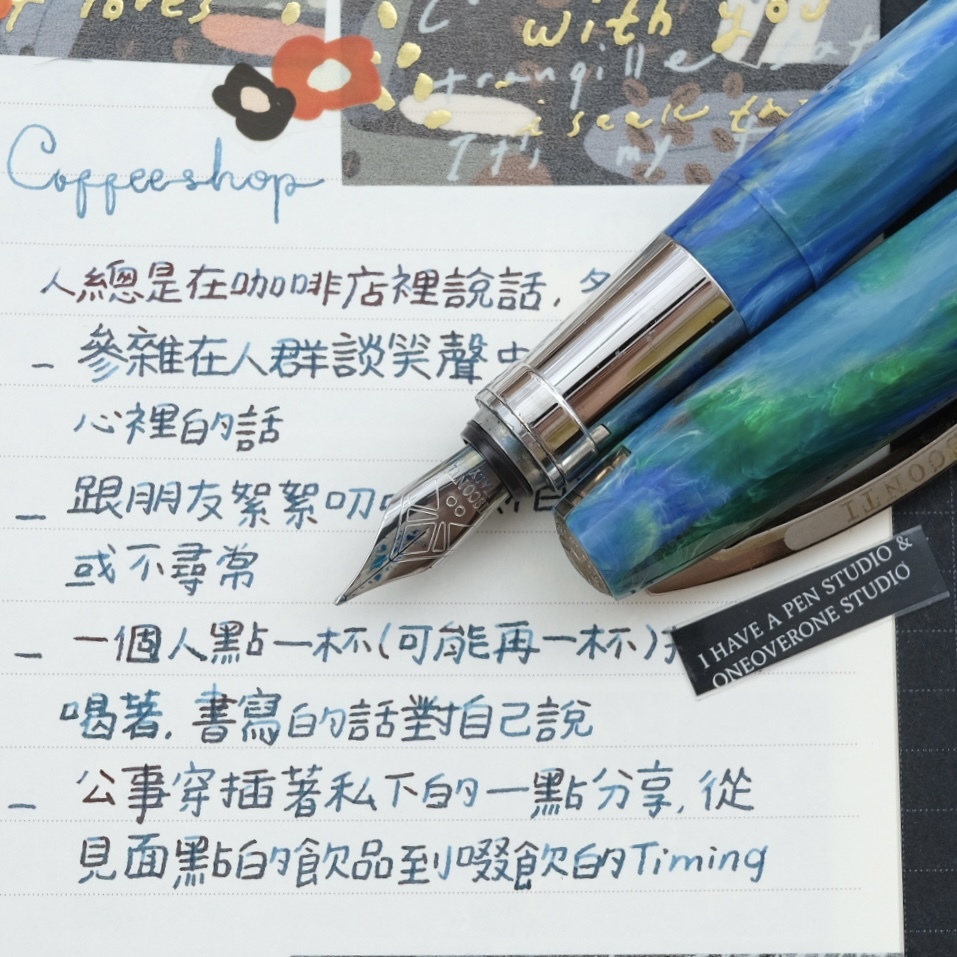 with you
tranquille
i seek
It's my
Coffeeshop
人總是在咖啡店裡說話,
- 參雜在人群談笑聲中
心裡的話
- 跟朋友絮絮叨
或不尋常
- 一個人點一杯(可能再一杯)
喝著,書寫的話對自己說
- 公事穿插著私下的一點分享,從
見面點的飲品到啜飲的Timing
VISCONTI
I HAVE A PEN STUDIO &
ONEOVERONE STUDIO